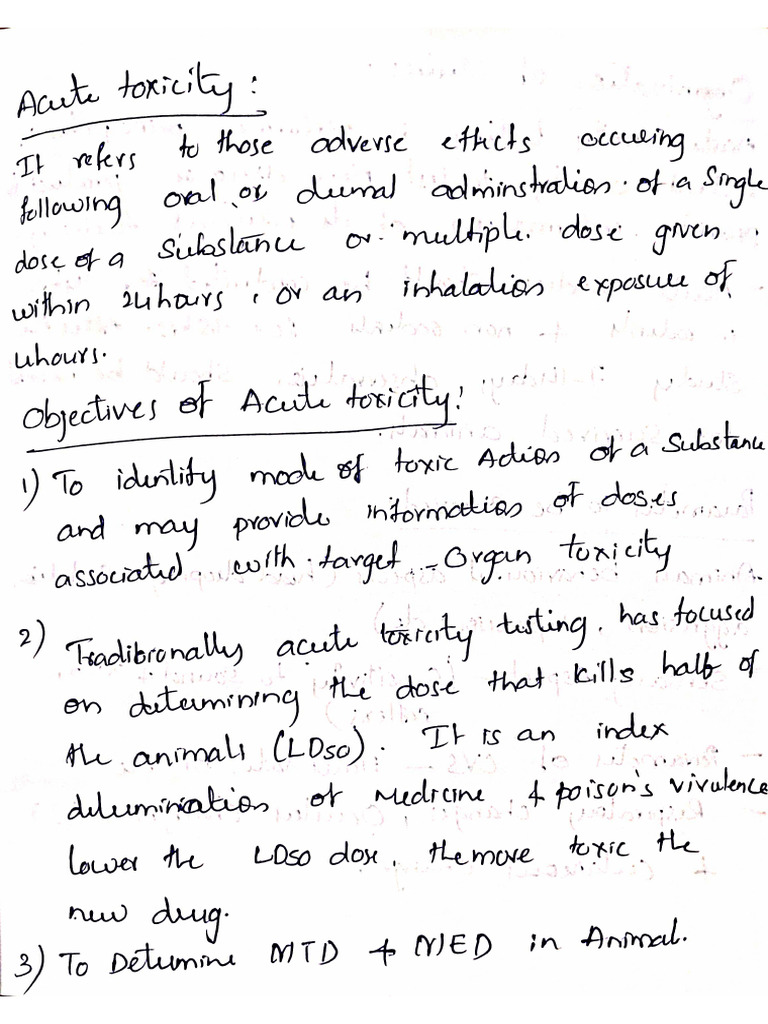 Acute toxicity:
It refers to those adverse effects occuring
following oral or dermal adminstration of a single
dose of a substance or multiple dose given
within 24hours, or an inhalation exposure of
4hours.
Objectives of Acute toxicity:
1) To identify mode of toxic Action of a substance
and may provide information of doses
associated with target - Organ toxicity
2) Traditionally acute toxicity testing, has focused
on determining the dose that kills half of
the animals (LD50). It is an index
determination of Medicine & poison's virulence
lower the LD50 dose, the more toxic the
new drug.
3) To Determine MTD & NED in Animal.